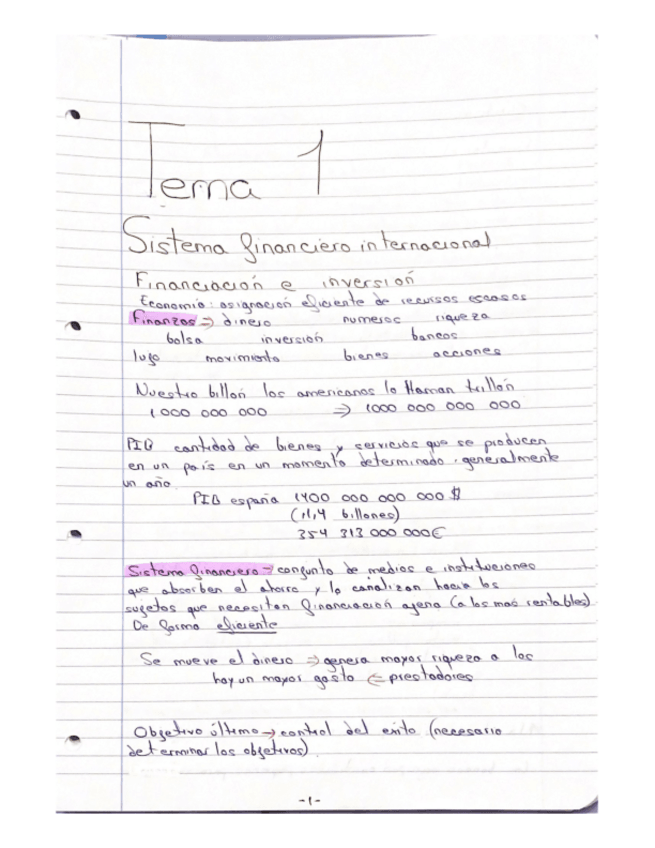 Tema 1
Sistema financiero internacional
Financiación e inversión
Economía: asignación eficiente de recursos escasos
Finanzas => dinero numeros riqueza
bolsa inversión bancos
lujo movimiento bienes acciones
Nuestro billón los americanos lo llaman trillón
1.000 000 000 => 1000 000 000 000
PIB cantidad de bienes y servicios que se producen
en un país en un momento determinado, generalmente
un año.
PIB españa 1400 000 000 000 $
(1,4 billones)
354 313 000 000€
Sistema financiero = conjunto de medios e instituciones
que absorben el ahorro y lo canalizan hacia los
sujetos que necesitan financiación ajena (a los mas rentables)
De forma eficiente
Se mueve el dinero => genera mayor riqueza a los
hay un mayor gasto <= prestadores
Objetivo último -> control del exito (necesario
determinar los objetivos).
-1-